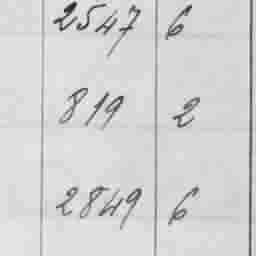 2547 6
819 2
2849 6